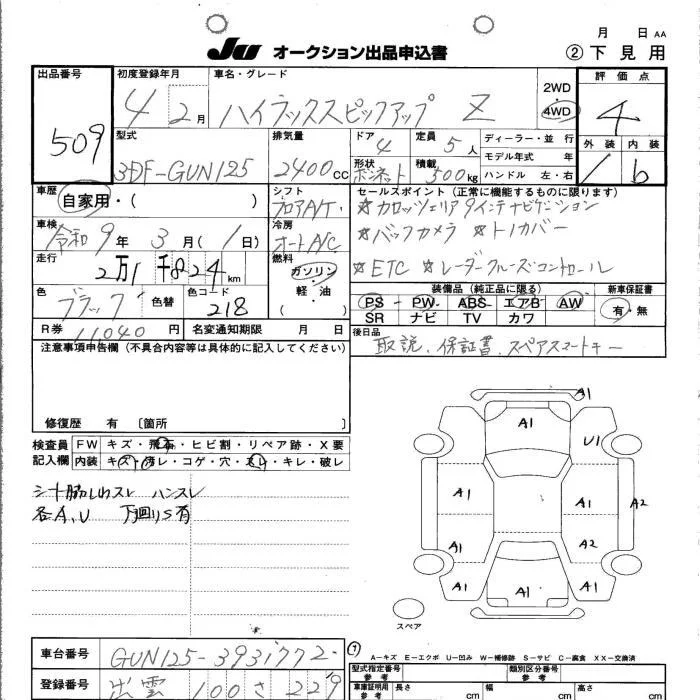 月 日 AA
JU オークション出品申込書
② 下見用
出品番号
509
初度登録年月
4 2月
車名・グレード
ハイラックスピックアップ Z
2WD
4WD
評価点
4
外装 内装
1 b
型式
3DF-GUN125
排気量
2400cc
ドア
4
定員
5人
形状
ボンネット
積載
500kg
ディーラー・並行
モデル年式 年
ハンドル 左・右
車歴
自家用・( )
シフト
フロアA/T
セールスポイント(正常に機能するものに限ります)
☆カロッツェリア9インチナビゲーション
☆バックカメラ ☆トノカバー
☆ETC ☆レーダークルーズコントロール
車検
令和9年 3月(1日)
冷房
オートA/C
走行
2万1千824km
燃料
ガソリン・
軽・油
( )
色
ブラック
色替
色コード
218
装備品(純正品に限る)
PS PW ABS エアB AW
SR ナビ TV カワ
新車保証書
有・無
R券 11040円
名変通知期限 月 日
後日品
取説、保証書、スペアスマートキー
注意事項申告欄(不具合内容等は具体的に記入してください)
修復歴 有 〔箇所 〕
検査員
記入欄
FW キズ・飛石・ヒビ割・リペア跡・X要
内装 キズ・汚レ・コゲ・穴・スレ・キレ・破レ
シート筋しわスレ ハンスレ
各A、U 下回りS有
A1
A1
U1
A1
A1
A2
A1
A2
A1
A1
A1
スペア
車台番号
GUN125-3931772
登録番号
出雲 100 さ 229
A-キズ E-エクボ U-凹み W-補修跡 S-サビ C-腐食 XX-交換済
型式指定番号
参考
類別区分番号
参考
車庫証明用
参考
長さ cm
幅 cm
高さ cm